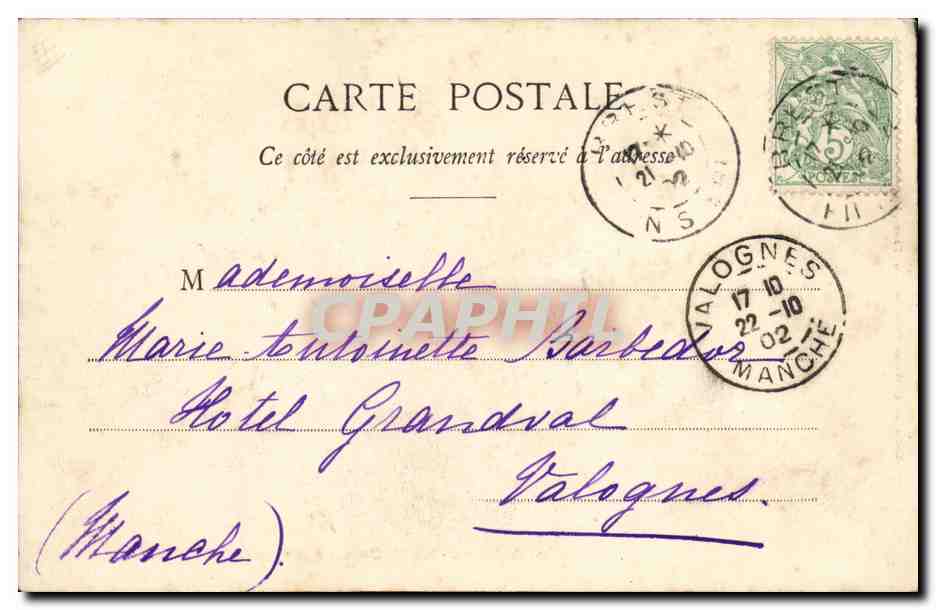 CARTE POSTALE
Ce côté est exclusivement réservé à l'adresse
BREST
21 10
5
POSTES
BREST
VALOGNES
17 10
22 -10
02
MANCHE
Mademoiselle
CPAPHIL
Marie-Antoinette Barbedor
Hotel Grandval
Valognes.
(Manche).